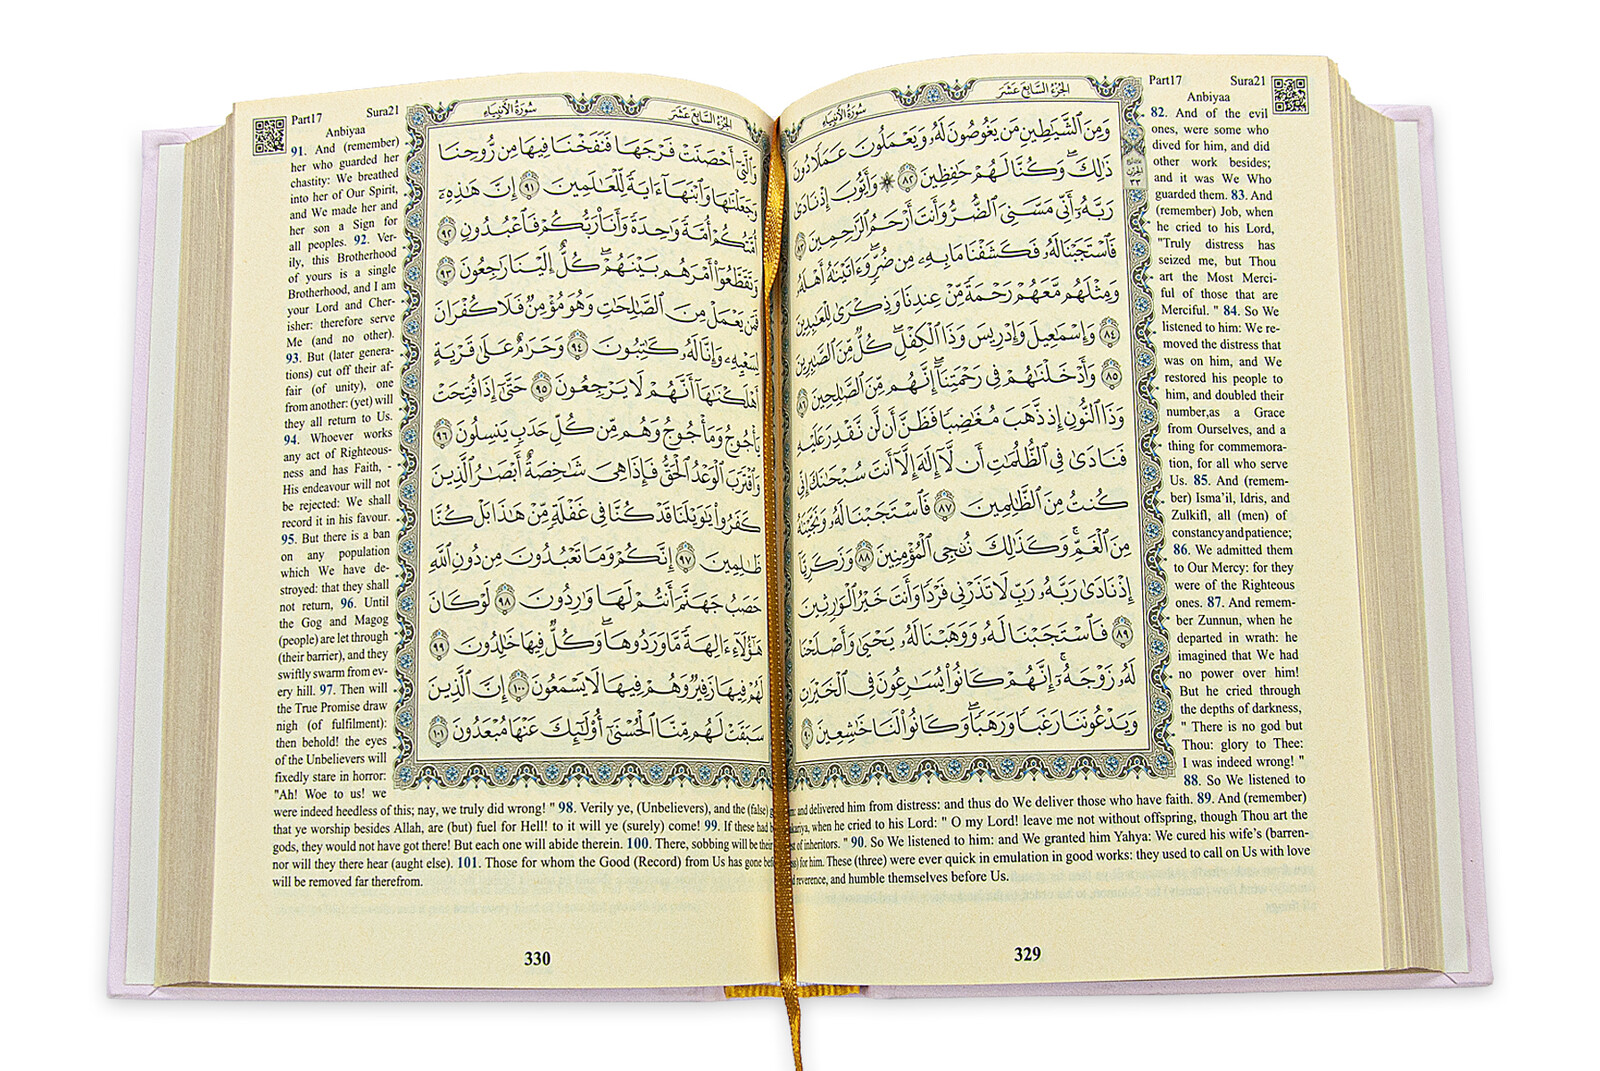 الجزء السابع عشر
سورة الأنبياء
وَمِنَ ٱلشَّيَٰطِينِ مَن يَغُوصُونَ لَهُۥ وَيَعْمَلُونَ عَمَلًا دُونَ
ذَٰلِكَ ۖ وَكُنَّا لَهُمْ حَٰفِظِينَ ٨٢ ۞ وَأَيُّوبَ إِذْ نَادَىٰ
رَبَّهُۥٓ أَنِّى مَسَّنِىَ ٱلضُّرُّ وَأَنتَ أَرْحَمُ ٱلرَّٰحِمِينَ ٨٣
فَٱسْتَجَبْنَا لَهُۥ فَكَشَفْنَا مَا بِهِۦ مِن ضُرٍّ ۖ وَءَاتَيْنَٰهُ أَهْلَهُۥ
وَمِثْلَهُم مَّعَهُمْ رَحْمَةً مِّنْ عِندِنَا وَذِكْرَىٰ لِلْعَٰبِدِينَ
٨٤ وَإِسْمَٰعِيلَ وَإِدْرِيسَ وَذَا ٱلْكِفْلِ ۖ كُلٌّ مِّنَ ٱلصَّٰبِرِينَ
٨٥ وَأَدْخَلْنَٰهُمْ فِى رَحْمَتِنَآ ۖ إِنَّهُم مِّنَ ٱلصَّٰلِحِينَ ٨٦
وَذَا ٱلنُّونِ إِذ ذَّهَبَ مُغَٰضِبًا فَظَنَّ أَن لَّن نَّقْدِرَ عَلَيْهِ
فَنَادَىٰ فِى ٱلظُّلُمَٰتِ أَن لَّآ إِلَٰهَ إِلَّآ أَنتَ سُبْحَٰنَكَ إِنِّى
كُنتُ مِنَ ٱلظَّٰلِمِينَ ٨٧ فَٱسْتَجَبْنَا لَهُۥ وَنَجَّيْنَٰهُ
مِنَ ٱلْغَمِّ ۚ وَكَذَٰلِكَ نُۨجِى ٱلْمُؤْمِنِينَ ٨٨ وَزَكَرِيَّآ
إِذْ نَادَىٰ رَبَّهُۥ رَبِّ لَا تَذَرْنِى فَرْدًا وَأَنتَ خَيْرُ ٱلْوَٰرِثِينَ
٨٩ فَٱسْتَجَبْنَا لَهُۥ وَوَهَبْنَا لَهُۥ يَحْيَىٰ وَأَصْلَحْنَا
لَهُۥ زَوْجَهُۥٓ ۚ إِنَّهُمْ كَانُوا۟ يُسَٰرِعُونَ فِى ٱلْخَيْرَٰتِ
وَيَدْعُونَنَا رَغَبًا وَرَهَبًا ۖ وَكَانُوا۟ لَنَا خَٰشِعِينَ ٩٠
Part17 Sura21
Anbiyaa
82. And of the evil
ones, were some who
dived for him, and did
other work besides;
and it was We Who
guarded them. 83. And
(remember) Job, when
he cried to his Lord,
"Truly distress has
seized me, but Thou
art the Most Merci-
ful of those that are
Merciful. " 84. So We
listened to him: We re-
moved the distress that
was on him, and We
restored his people to
him, and doubled their
number,as a Grace
from Ourselves, and a
thing for commemora-
tion, for all who serve
Us. 85. And (remem-
ber) Isma'il, Idris, and
Zulkifl, all (men) of
constancy and patience;
86. We admitted them
to Our Mercy: for they
were of the Righteous
ones. 87. And remem-
ber Zunnun, when he
departed in wrath: he
imagined that We had
no power over him!
But he cried through
the depths of darkness,
" There is no god but
Thou: glory to Thee:
I was indeed wrong! "
88. So We listened to
and delivered him from distress: and thus do We deliver those who have faith. 89. And (remember)
when he cried to his Lord: " O my Lord! leave me not without offspring, though Thou art the
of inheritors. " 90. So We listened to him: and We granted him Yahya: We cured his wife's (barren-
for him. These (three) were ever quick in emulation in good works: they used to call on Us with love
reverence, and humble themselves before Us.
329
الجزء السابع عشر
سورة الأنبياء
وَٱلَّتِىٓ أَحْصَنَتْ فَرْجَهَا فَنَفَخْنَا فِيهَا مِن رُّوحِنَا
وَجَعَلْنَٰهَا وَٱبْنَهَآ ءَايَةً لِّلْعَٰلَمِينَ ٩١ إِنَّ هَٰذِهِۦٓ
أُمَّتُكُمْ أُمَّةً وَٰحِدَةً وَأَنَا۠ رَبُّكُمْ فَٱعْبُدُونِ ٩٢
وَتَقَطَّعُوٓا۟ أَمْرَهُم بَيْنَهُمْ ۖ كُلٌّ إِلَيْنَا رَٰجِعُونَ ٩٣
فَمَن يَعْمَلْ مِنَ ٱلصَّٰلِحَٰتِ وَهُوَ مُؤْمِنٌ فَلَا كُفْرَانَ
لِسَعْيِهِۦ وَإِنَّا لَهُۥ كَٰتِبُونَ ٩٤ وَحَرَٰمٌ عَلَىٰ قَرْيَةٍ
أَهْلَكْنَٰهَآ أَنَّهُمْ لَا يَرْجِعُونَ ٩٥ حَتَّىٰٓ إِذَا فُتِحَتْ
يَأْجُوجُ وَمَأْجُوجُ وَهُم مِّن كُلِّ حَدَبٍ يَنسِلُونَ ٩٦
وَٱقْتَرَبَ ٱلْوَعْدُ ٱلْحَقُّ فَإِذَا هِىَ شَٰخِصَةٌ أَبْصَٰرُ ٱلَّذِينَ
كَفَرُوا۟ يَٰوَيْلَنَا قَدْ كُنَّا فِى غَفْلَةٍ مِّنْ هَٰذَا بَلْ كُنَّا
ظَٰلِمِينَ ٩٧ إِنَّكُمْ وَمَا تَعْبُدُونَ مِن دُونِ ٱللَّهِ
حَصَبُ جَهَنَّمَ أَنتُمْ لَهَا وَٰرِدُونَ ٩٨ لَوْ كَانَ
هَٰٓؤُلَآءِ ءَالِهَةً مَّا وَرَدُوهَا ۖ وَكُلٌّ فِيهَا خَٰلِدُونَ ٩٩
لَهُمْ فِيهَا زَفِيرٌ وَهُمْ فِيهَا لَا يَسْمَعُونَ ١٠٠ إِنَّ ٱلَّذِينَ
سَبَقَتْ لَهُم مِّنَّا ٱلْحُسْنَىٰٓ أُو۟لَٰٓئِكَ عَنْهَا مُبْعَدُونَ ١٠١
Part17 Sura21
Anbiyaa
91. And (remember)
her who guarded her
chastity: We breathed
into her of Our Spirit,
and We made her and
her son a Sign for
all peoples. 92. Ver-
ily, this Brotherhood
of yours is a single
Brotherhood, and I am
your Lord and Cher-
isher: therefore serve
Me (and no other).
93. But (later genera-
tions) cut off their af-
fair (of unity), one
from another: (yet) will
they all return to Us.
94. Whoever works
any act of Righteous-
ness and has Faith, -
His endeavour will not
be rejected: We shall
record it in his favour.
95. But there is a ban
on any population
which We have de-
stroyed: that they shall
not return, 96. Until
the Gog and Magog
(people) are let through
(their barrier), and they
swiftly swarm from ev-
ery hill. 97. Then will
the True Promise draw
nigh (of fulfilment):
then behold! the eyes
of the Unbelievers will
fixedly stare in horror:
"Ah! Woe to us! we
were indeed heedless of this; nay, we truly did wrong! " 98. Verily ye, (Unbelievers), and the (false)
that ye worship besides Allah, are (but) fuel for Hell! to it will ye (surely) come! 99. If these had
gods, they would not have got there! But each one will abide therein. 100. There, sobbing will be their
nor will they there hear (aught else). 101. Those for whom the Good (Record) from Us has gone
will be removed far therefrom.
330